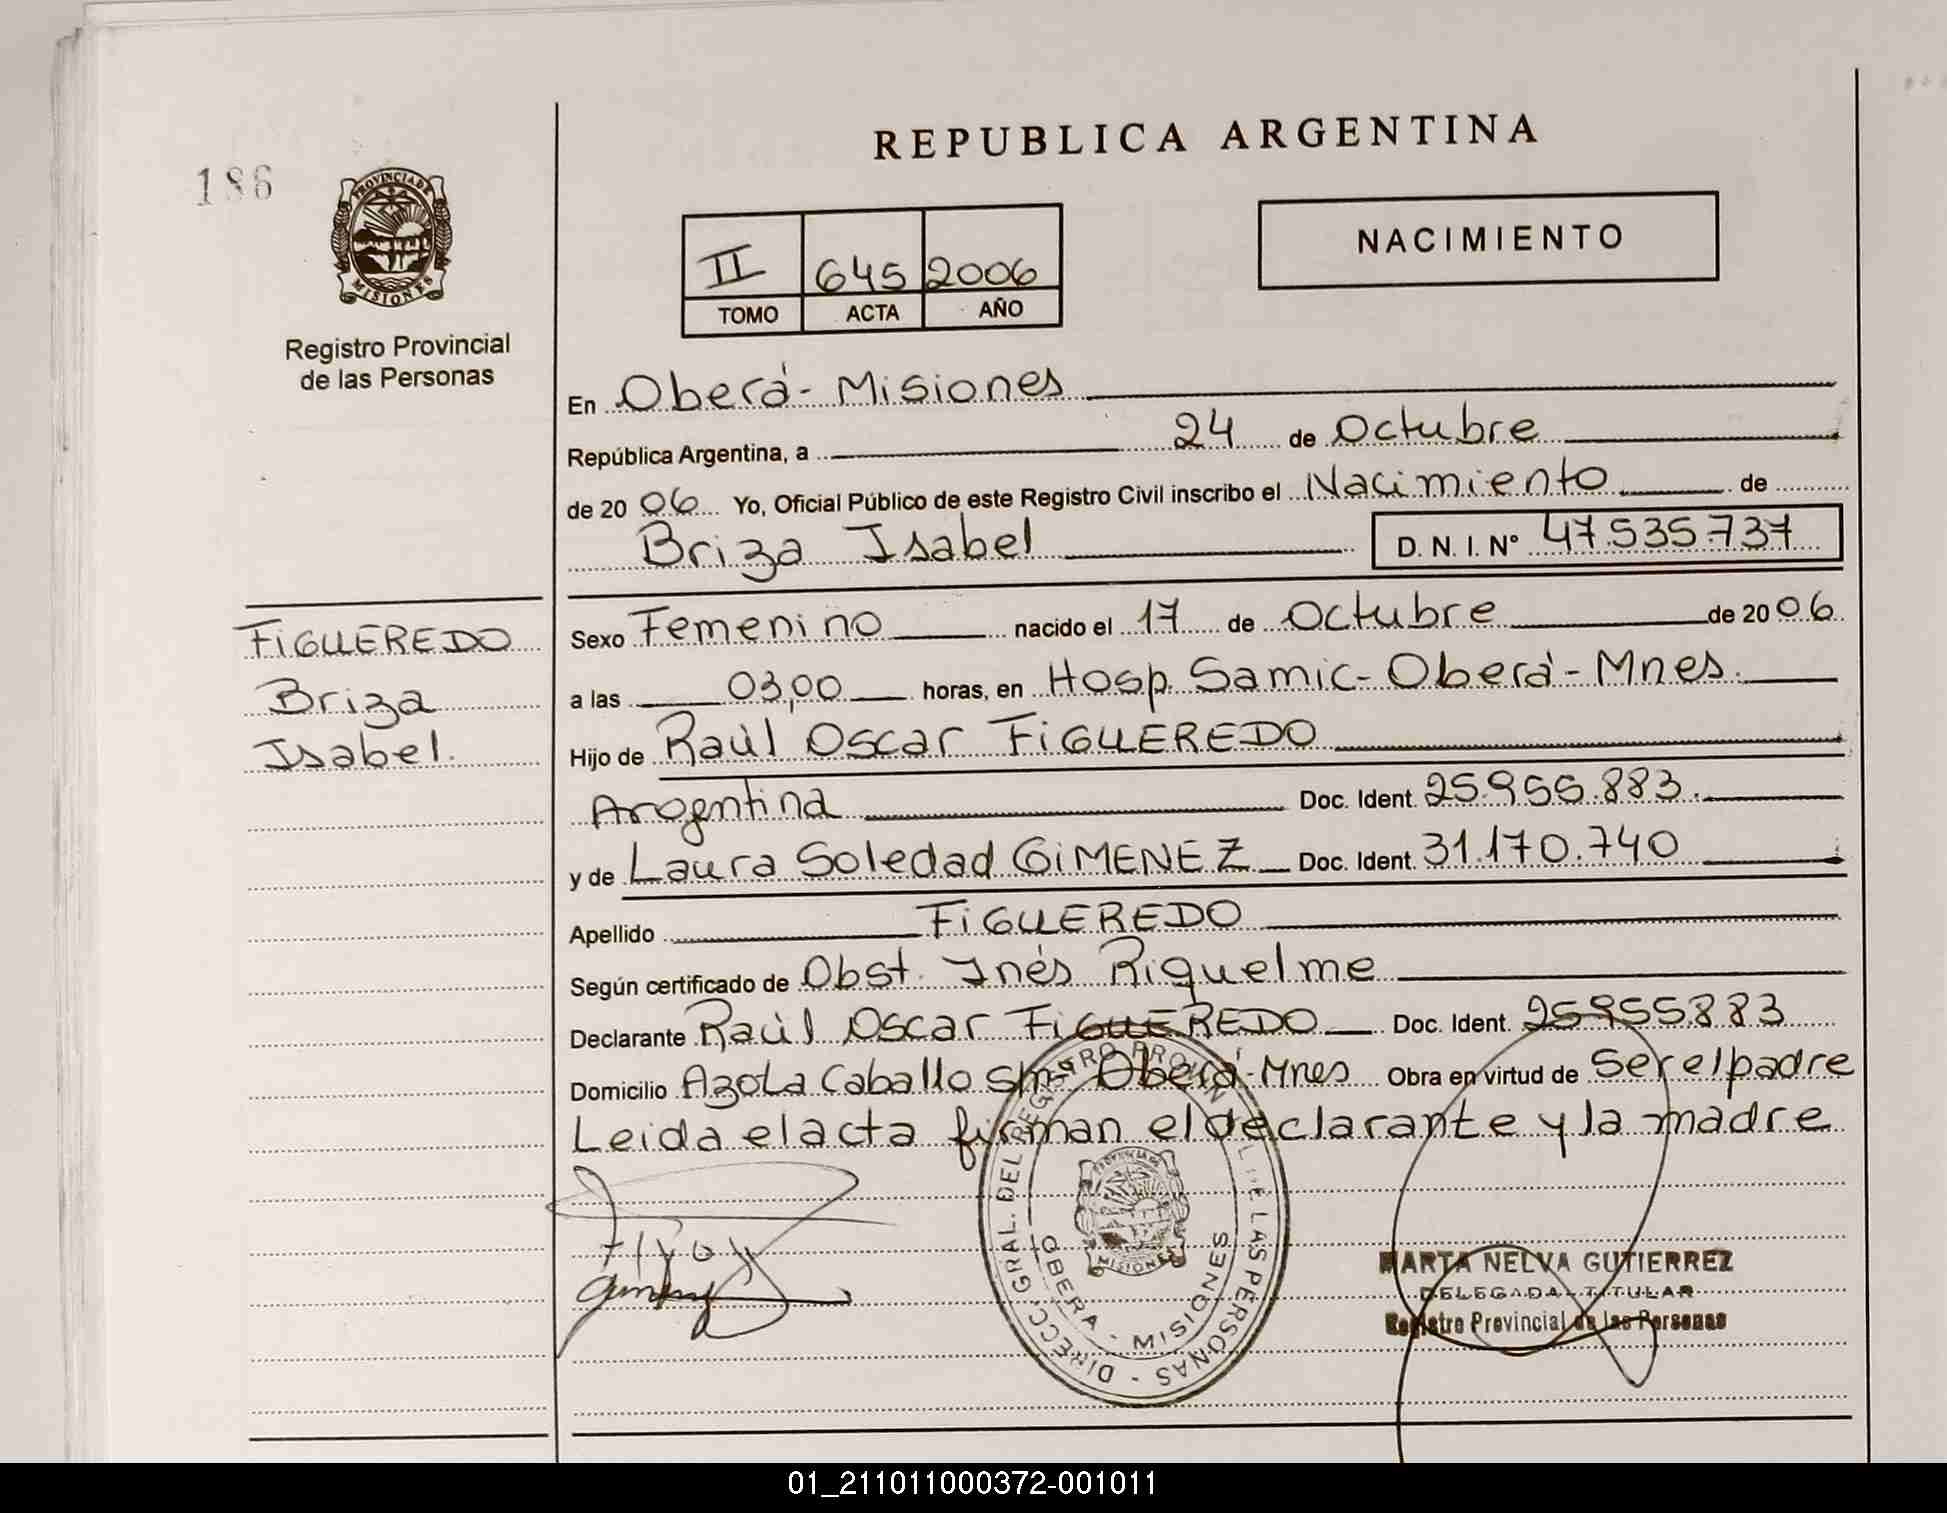 REPUBLICA ARGENTINA
186
PROVINCIA DE
MISIONES
NACIMIENTO
II 645 2006
TOMO ACTA AÑO
Registro Provincial
de las Personas
En Oberá - Misiones
República Argentina, a 24 de Octubre
de 20 06 Yo, Oficial Público de este Registro Civil inscribo el Nacimiento de
Briza Isabel D. N. I. N° 47.535.737
FIGUEREDO
Briza
Isabel.
Sexo Femenino nacido el 17 de Octubre de 20 06
a las 03,00 horas, en Hosp. Samic - Oberá - Mnes.
Hijo de Raúl Oscar FIGUEREDO
Argentina Doc. Ident. 25.955.883.
y de Laura Soledad GIMENEZ Doc. Ident. 31.170.740
Apellido FIGUEREDO
Según certificado de Obst. Inés Riquelme
Declarante Raúl Oscar FIGUEREDO Doc. Ident. 25955883
Domicilio Azola Caballo s/n - Oberá - Mnes Obra en virtud de Ser el padre
Leida el acta firman el declarante y la madre
DIRECC. GRAL. DEL REGISTRO PROVIN DE LAS PERSONAS
MISIONES
OBERA - MISIONES
MARTA NELVA GUTIERREZ
DELEGADA TITULAR
Registro Provincial de las Personas
01_211011000372-001011